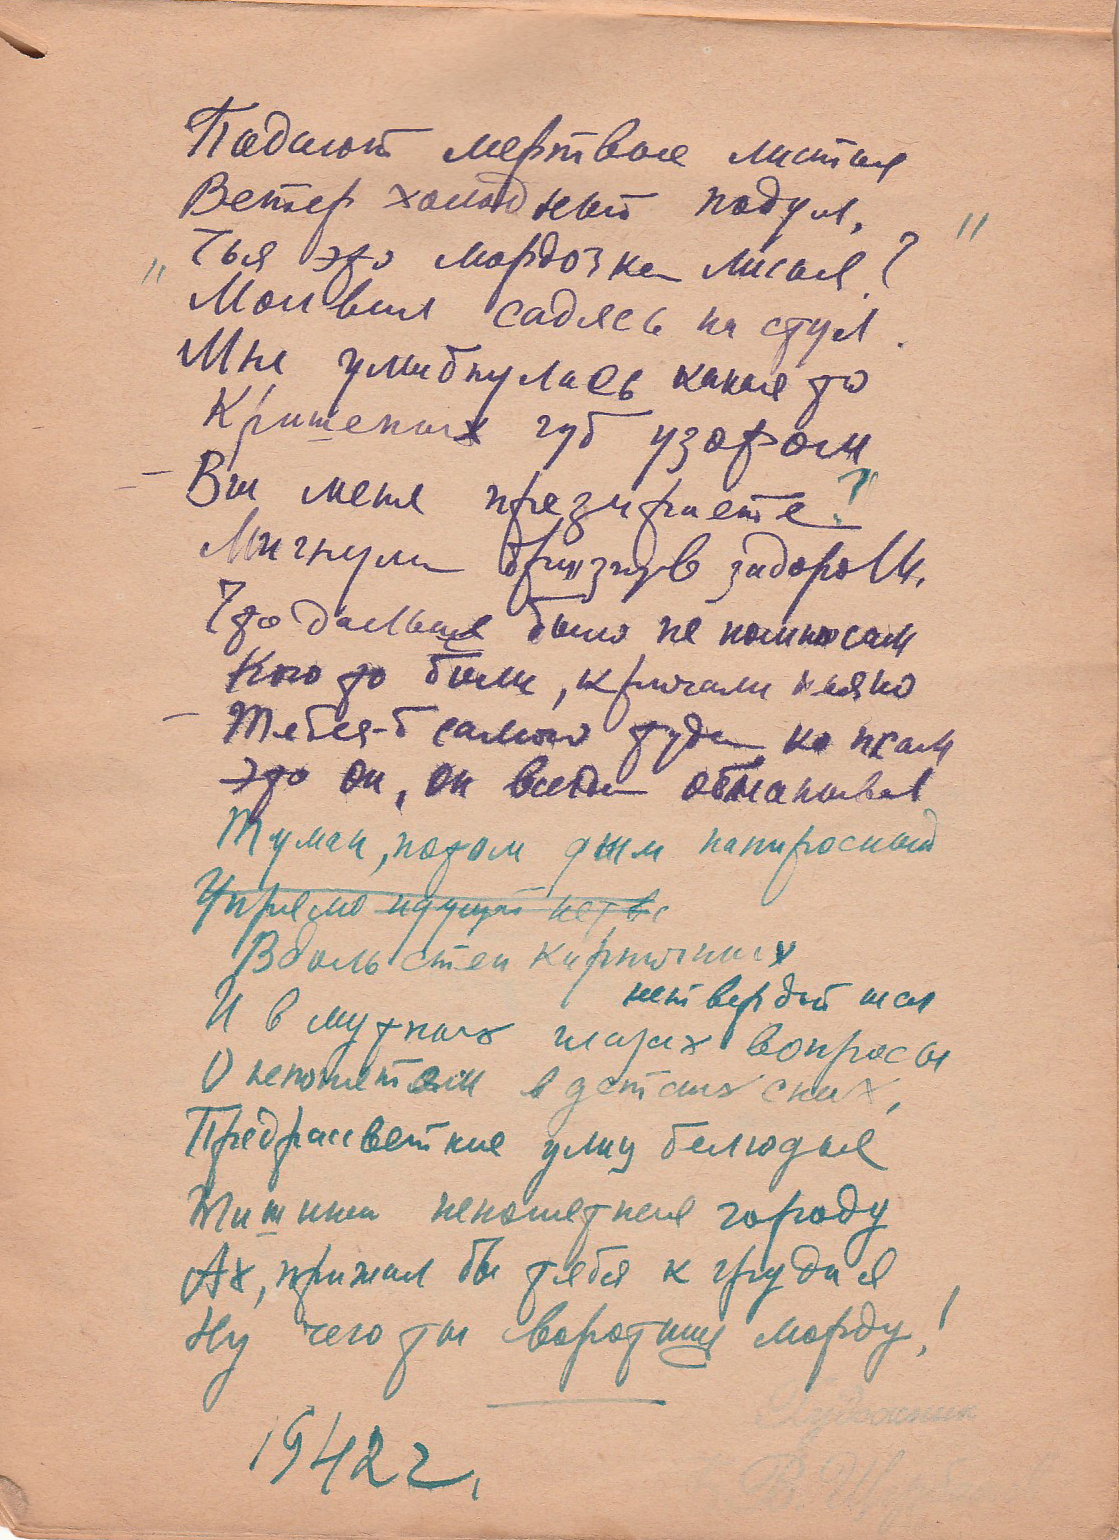 Падают мертвые листья
Ветер холодный подул,
"
Чья это мордочка лисья?
" Молвил садясь на стул.
Мне улыбнулась какая то
Крашеных губ узором
– Вы меня презираете?
Мигнула брызнув задором.
Что дальше было не помню сам
Кого то били, кричали пьяно
– Тебя-б самого туда ко псам
Это он, он всегда обманывал
Туман, потом дым папиросный
Упрямо идущий нетве
Вдоль стен кирпичных
нетвердый шаг
И в мутных глазах вопросы
О непонятом в детских снах,
Предрассветные улиц безлюдья
Тишина непонятная городу
Ах, прижал бы тебя к груди я
Ну чего ты воротишь морду!
1942 г.
Художник
В.